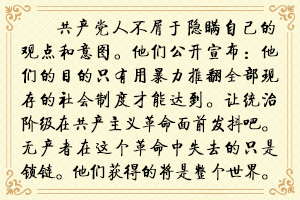 共产党人不屑于隐瞒自己的
观点和意图。他们公开宣布：他
们的目的只有用暴力推翻全部现
存的社会制度才能达到。让统治
阶级在共产主义革命面前发抖吧。
无产者在这个革命中失去的只是
锁链。他们获得的将是整个世界。